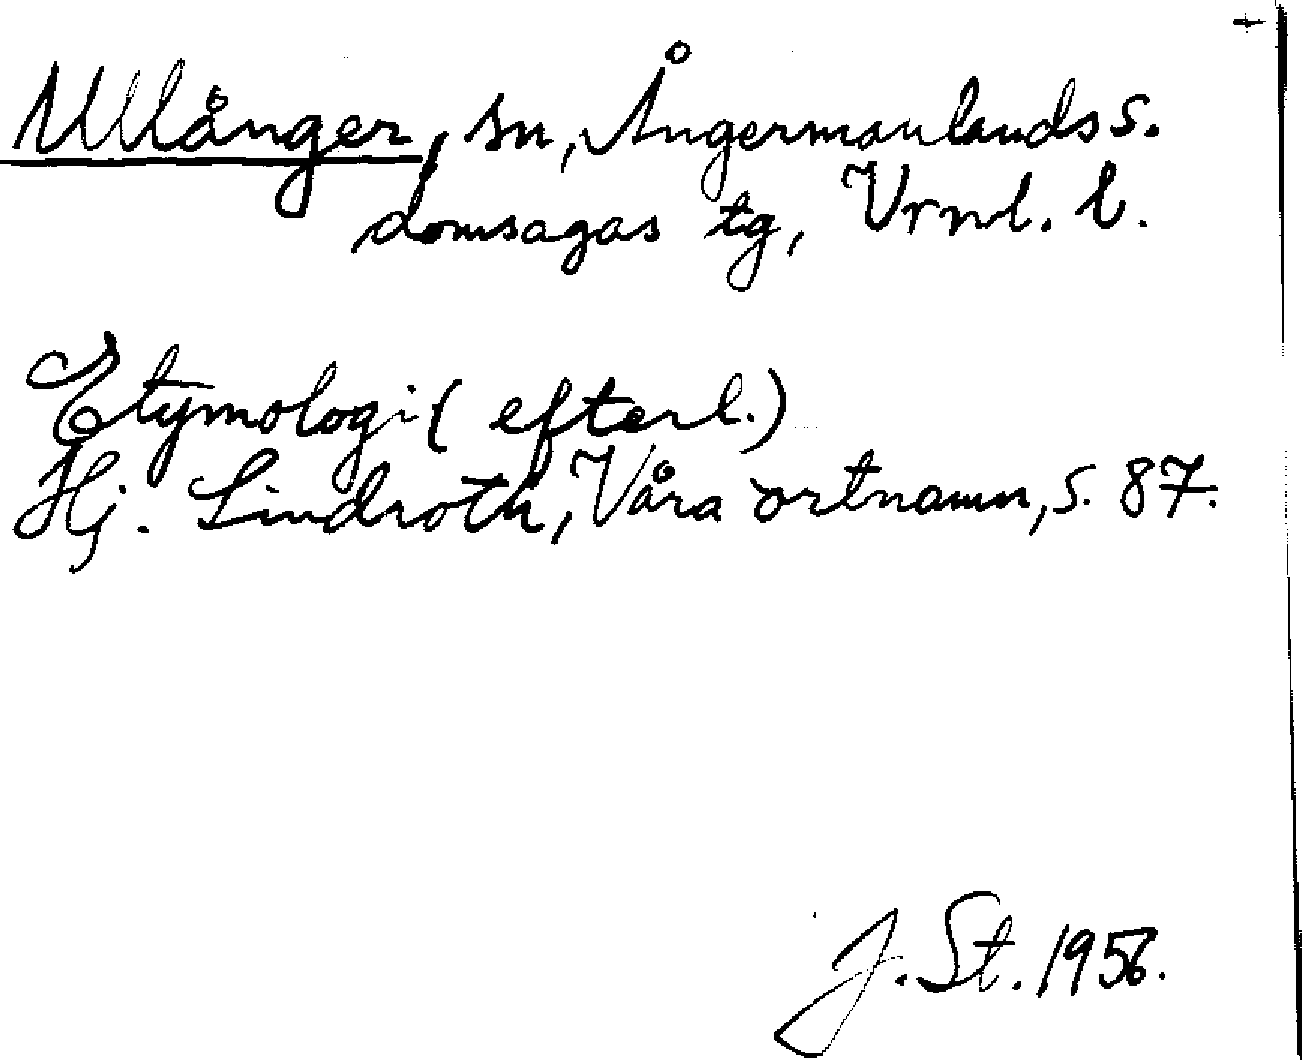 Ullånger, sn, Ångermanlands s.
domsagas tg, Vrnl. l.
Etymologi (efterl.)
Hj. Lindroth, Våra ortnamn, s. 87.
J. St. 1956.